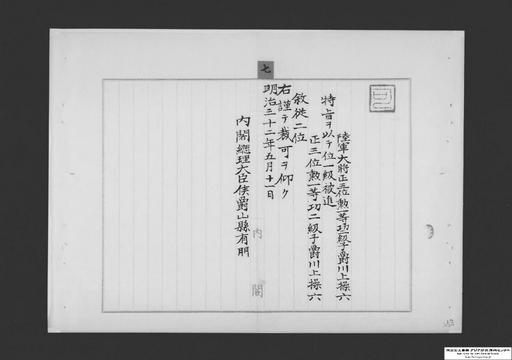 陸軍大将正三位勲一等功二級子爵川上操六
特旨ヲ以テ位一級被進
正三位勲一等功二級子爵川上操六
叙従二位
右謹テ裁可ヲ仰ク
明治三十二年五月十一日
内閣総理大臣侯爵山縣有朋
七
内閣